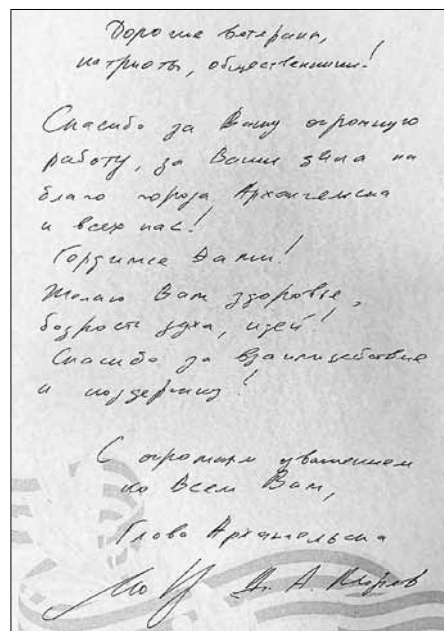 Дорогие ветераны,
патриоты, общественники!
Спасибо за Вашу огромную
работу, за Ваши дела на
благо города Архангельска
и всех нас!
Гордимся Вами!
Желаю Вам здоровья,
бодрости духа, идей!
Спасибо за взаимодействие
и поддержку!
С огромным уважением
ко Всем Вам,
Глава Архангельска
Д. А. Морев